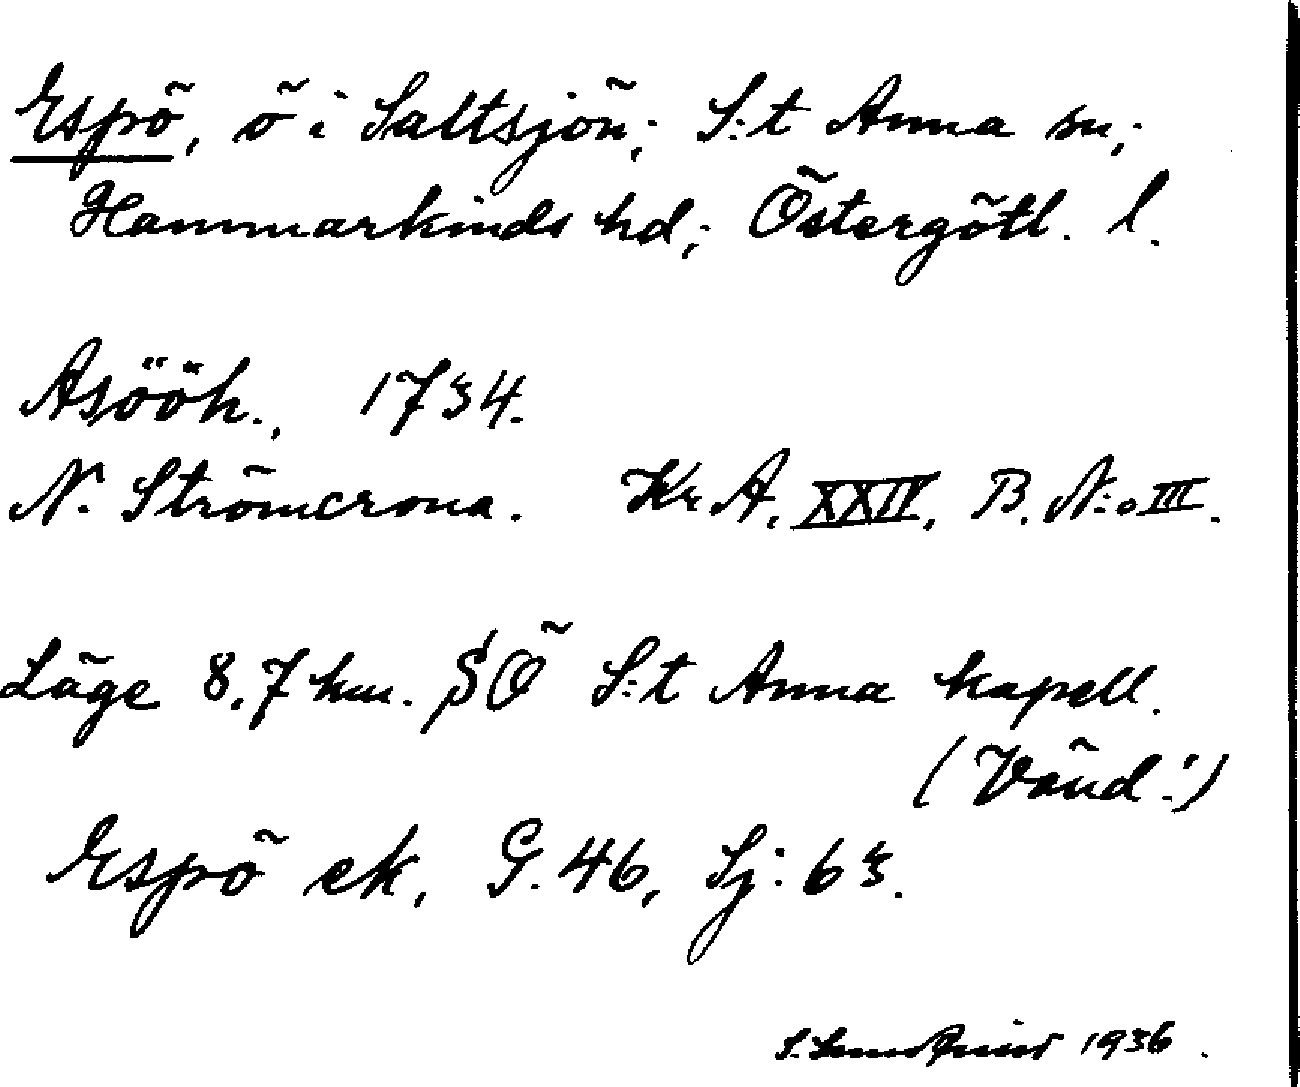 Espö, ö i Saltsjön; S:t Anna sn;
Hammarkinds hd; Östergötl. l.
Asööh., 1734.
N. Strömcrona. Kr. A. XXIV, B. N:o III.
Läge 8,7 km. SÖ S:t Anna kapell.
(Vänd!)
Espö ek, G. 46, Sj: 63.
S. 1936.